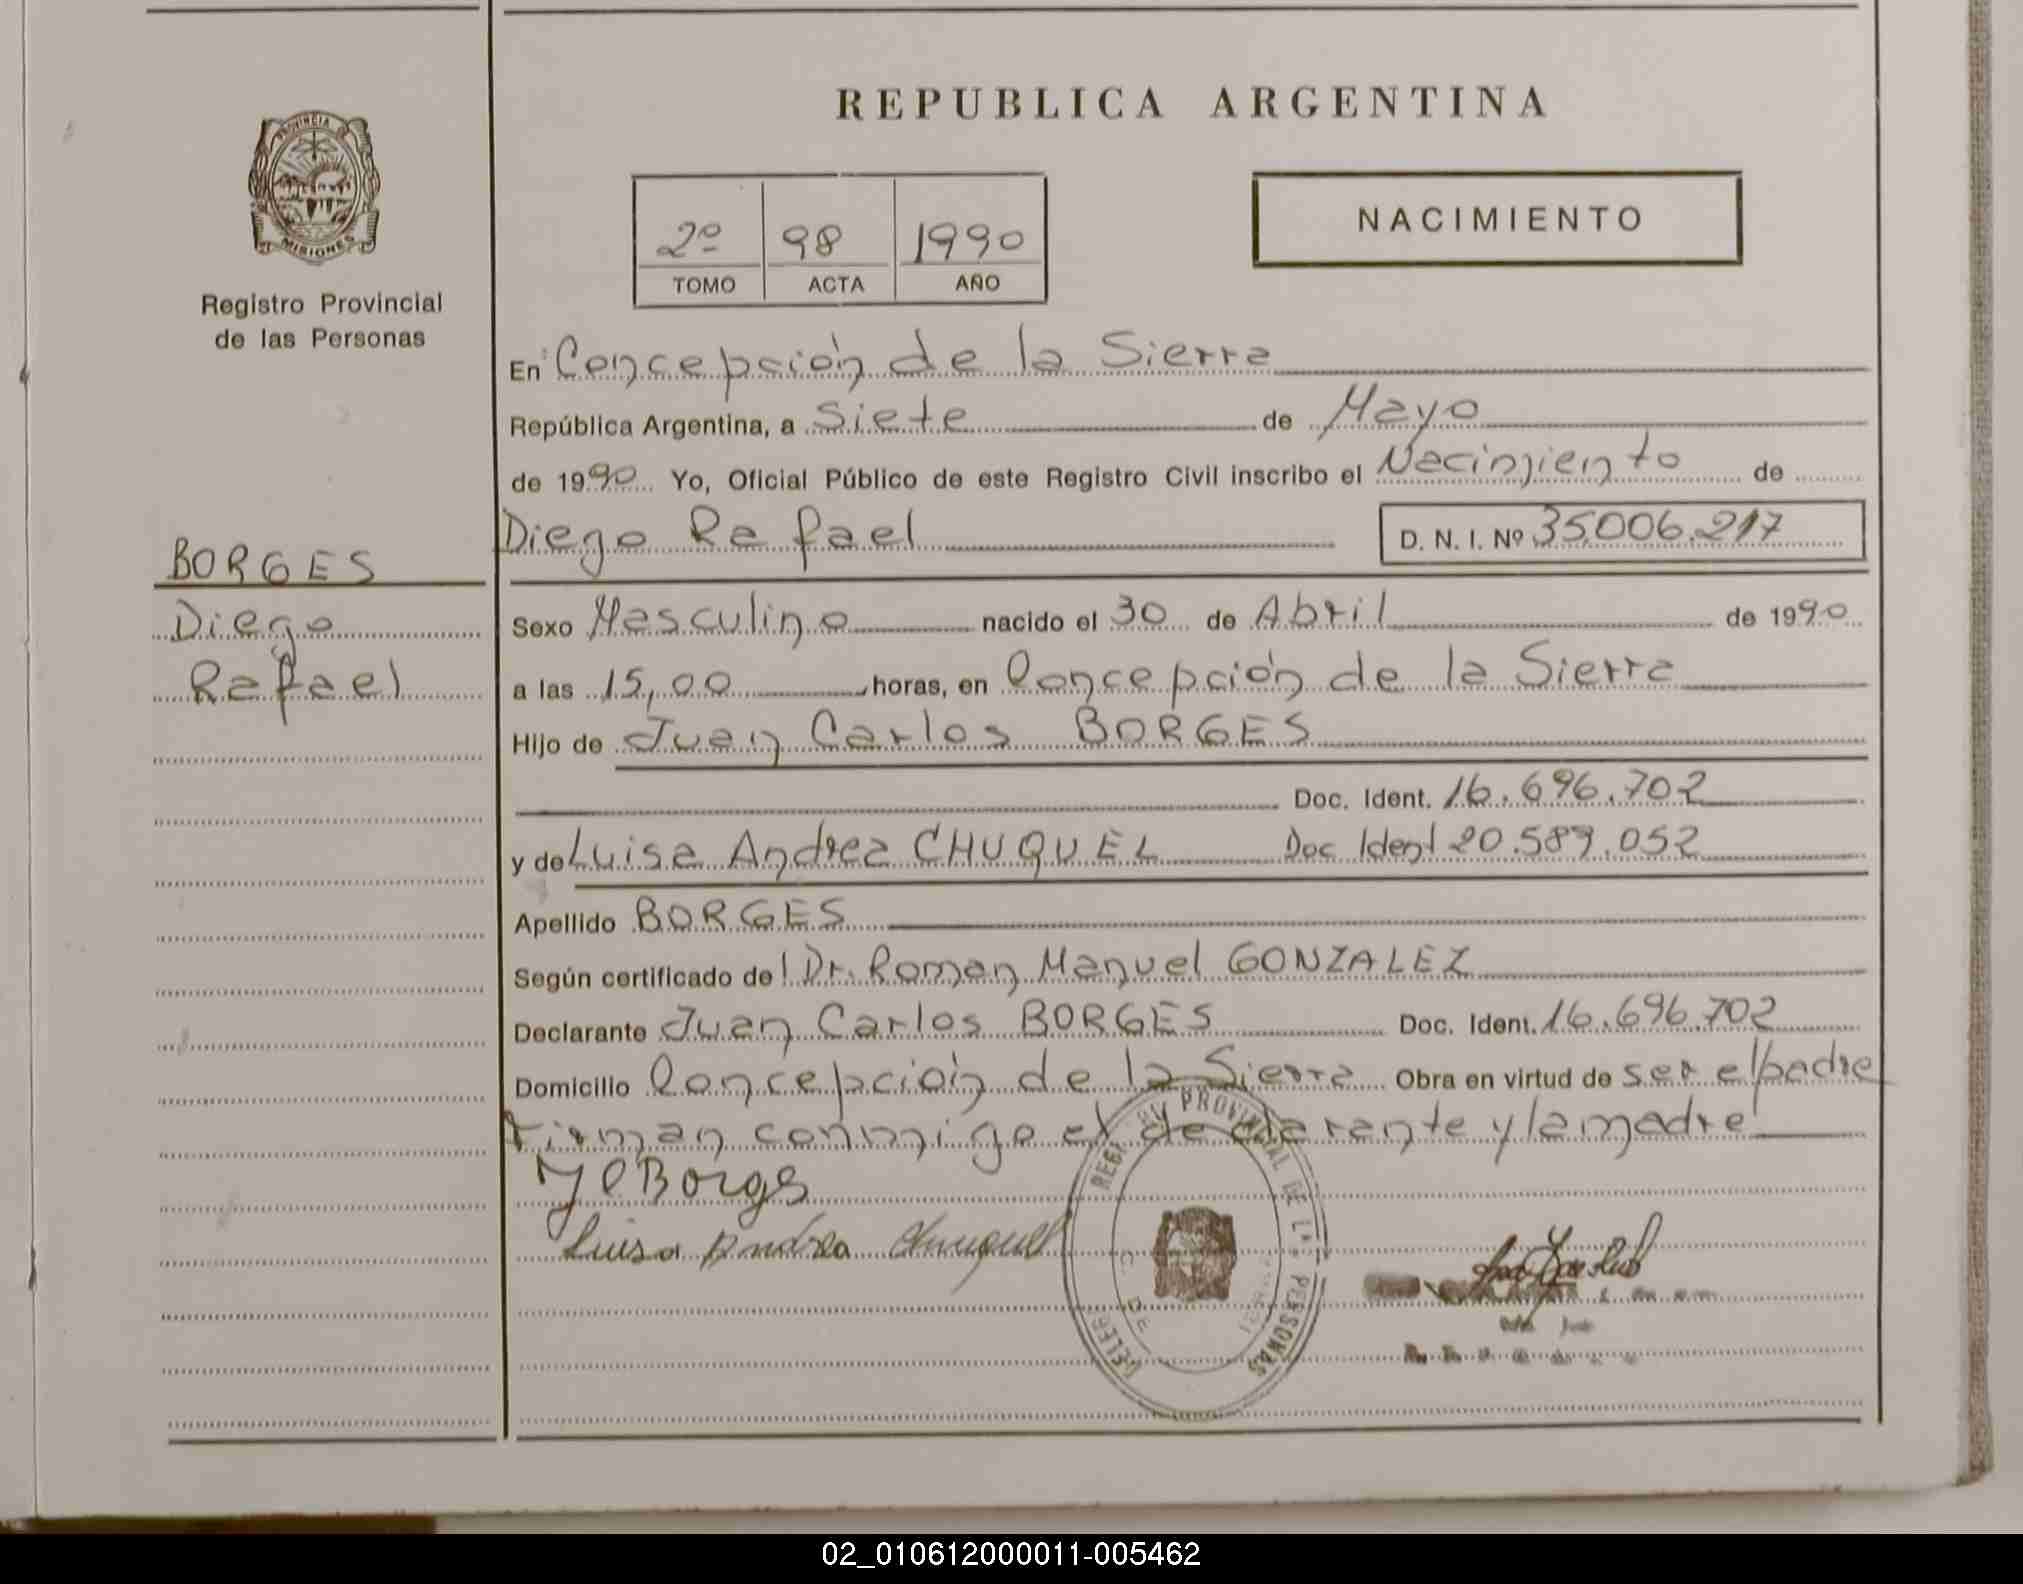 REPUBLICA ARGENTINA
PROVINCIA DE
MISIONES
Registro Provincial
de las Personas
2º 98 1990
TOMO ACTA AÑO
NACIMIENTO
En Concepción de la Sierra
República Argentina, a Siete de Mayo
de 1990 Yo, Oficial Público de este Registro Civil inscribo el Nacimiento de
Diego Rafael D. N. I. Nº 35.006.217
BORGES
Diego
Rafael
Sexo Masculino nacido el 30 de Abril de 1990
a las 15,00 horas, en Concepción de la Sierra
Hijo de Juan Carlos BORGES
Doc. Ident. 16.696.702
y de Luisa Andrea CHUQUEL Doc Ident 20.589.052
Apellido BORGES
Según certificado de l Dr. Roman Manuel GONZALEZ
Declarante Juan Carlos BORGES Doc. Ident. 16.696.702
Domicilio Concepción de la Sierra Obra en virtud de ser el padre
Firman conmigo el declarante y la madre
JCBorges
Luisa Andrea Chuquel
PROVINCIAL DE LAS PERSONAS
02_010612000011-005462